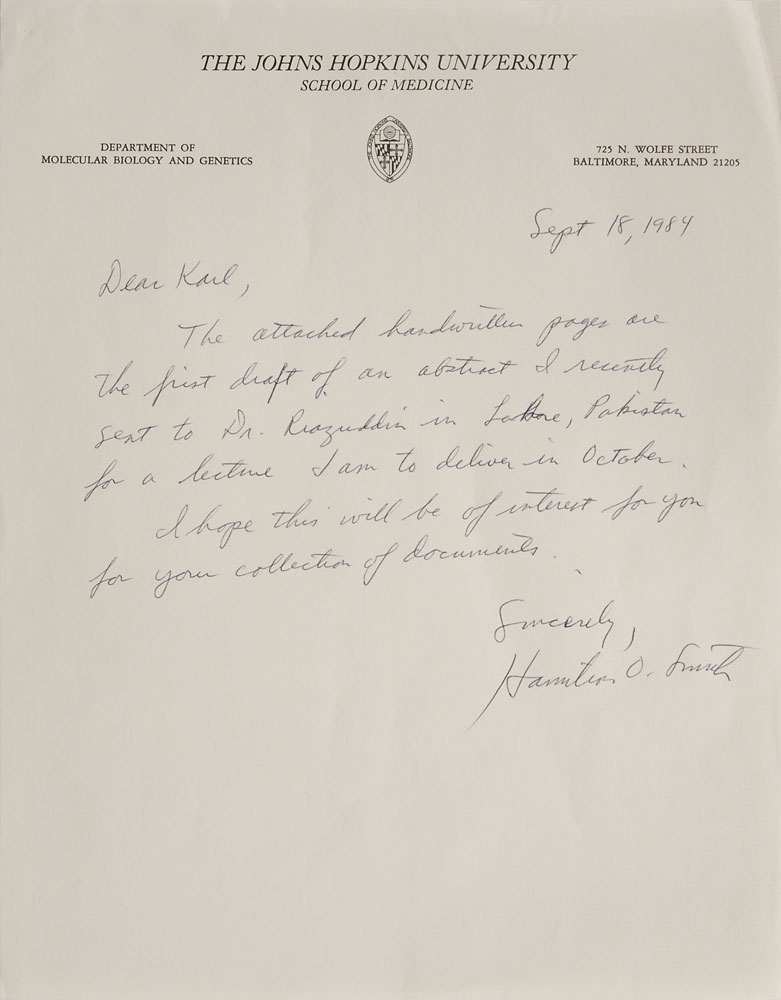 THE JOHNS HOPKINS UNIVERSITY
SCHOOL OF MEDICINE
DEPARTMENT OF
MOLECULAR BIOLOGY AND GENETICS
725 N. WOLFE STREET
BALTIMORE, MARYLAND 21205
Sept 18, 1984
Dear Karl,
The attached handwritten pages are
the first draft of an abstract I recently
sent to Dr. Riazuddin in Lahore, Pakistan
for a lecture I am to deliver in October.
I hope this will be of interest for you
for your collection of documents.
Sincerely,
Hamilton O. Smith